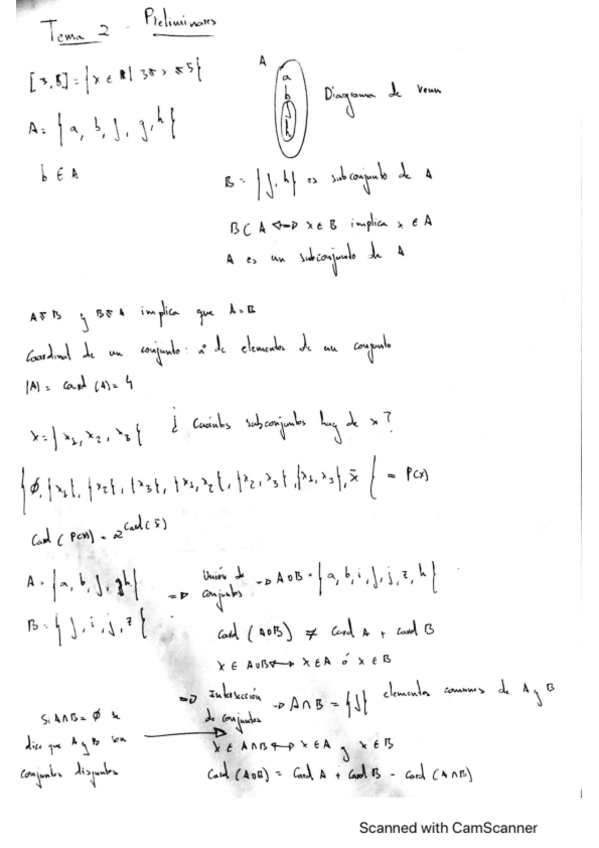 Tema 2 - Preliminares
[3,5] = {x ∈ R | 3 ≤ x ≤ 5}
A = {a, b, j, g, h}
b ∈ A
A
a
b
j
h
Diagrama de venn
B = {j, h} es subconjunto de A
B ⊂ A ⟷ x ∈ B implica x ∈ A
A es un subconjunto de A
A ⊆ B y B ⊆ A implica que A = B
Coordinal de un conjunto: nº de elementos de un conjunto
|A| = card (A) = 4
x = {x1, x2, x3} ¿Cuántos subconjuntos hay de x?
{∅, {x1}, {x2}, {x3}, {x1, x2}, {x2, x3}, {x1, x3}, x} = P(x)
Card (P(x)) = 2
A = {a, b, j, g, h}
B = {j, i, j, z}
⇒ Unión de conjuntos → A ∪ B = {a, b, i, j, j, z, h}
Card (A ∪ B) ≠ Card A + Card B
x ∈ A ∪ B ⟷ x ∈ A ó x ∈ B
⇒ Intersección de conjuntos → A ∩ B = {j} elementos comunes de A y B
Si A ∩ B = ∅ se
dice que A y B son
conjuntos disjuntos
x ∈ A ∩ B ⟷ x ∈ A y x ∈ B
Card (A ∪ B) = Card A + Card B - Card (A ∩ B)
Scanned with CamScanner